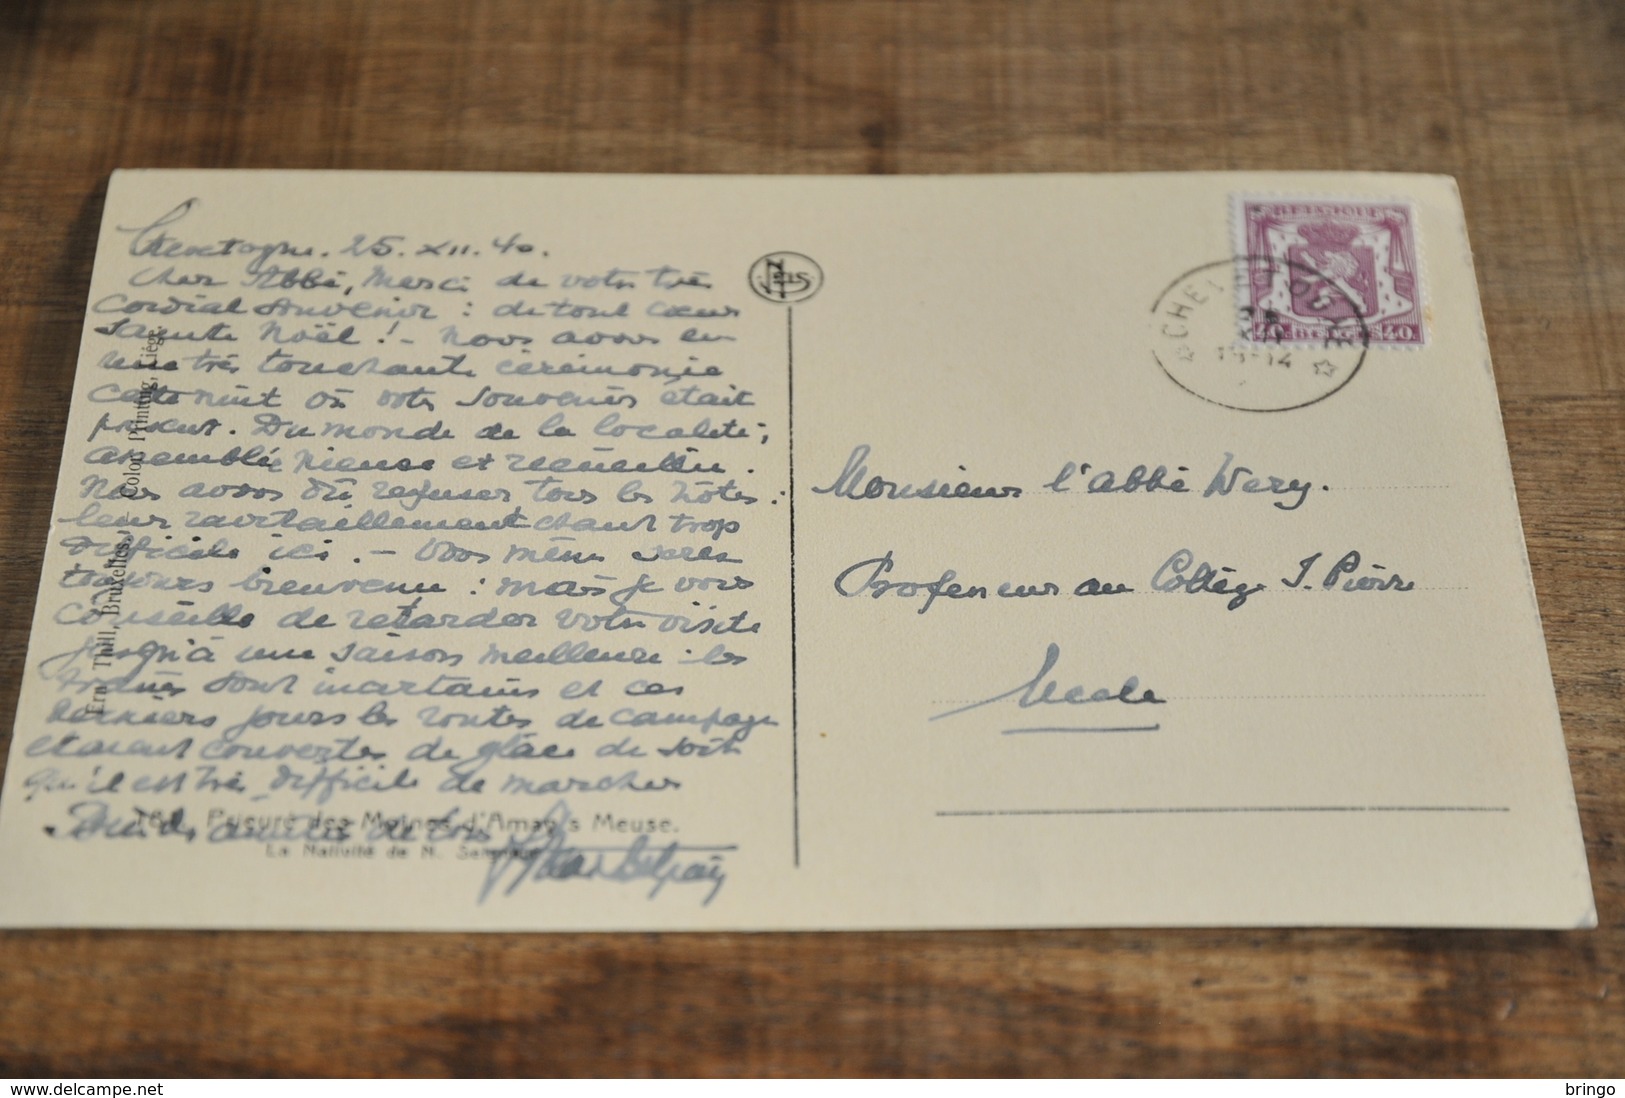 Chevetogne. 25. XII. 40.
Cher Abbé, Merci de votre très
cordial souvenir : de tout cœur
Sainte Noël ! - Nous avons eu
une très touchante cérémonie
cette nuit où votre souvenir était
présent. Du monde de la localité,
assemblée pieuse et recueillie.
Nous avons dû refuser tous les hôtes :
leur ravitaillement étant trop
difficile ici. - Vous même serez
toujours bienvenu : mais je vous
conseille de retarder votre visite
jusqu'à une saison meilleure : les
trains sont incertains et ces
derniers jours les routes de campagne
étaient couvertes de glace de sorte
qu'il est très difficile de marcher
de
Prieuré des Moines d'Amay s Meuse.
La Nativité de N. Seigneur
Ern. Thill, Bruxelles. Color Printing, Liége.
BELGIQUE
40 BELGIE 40
CHEVETOGNE
Monsieur l'abbé Wery.
Professeur au Collège S. Pierre
Uccle
delcampe.net
bringo